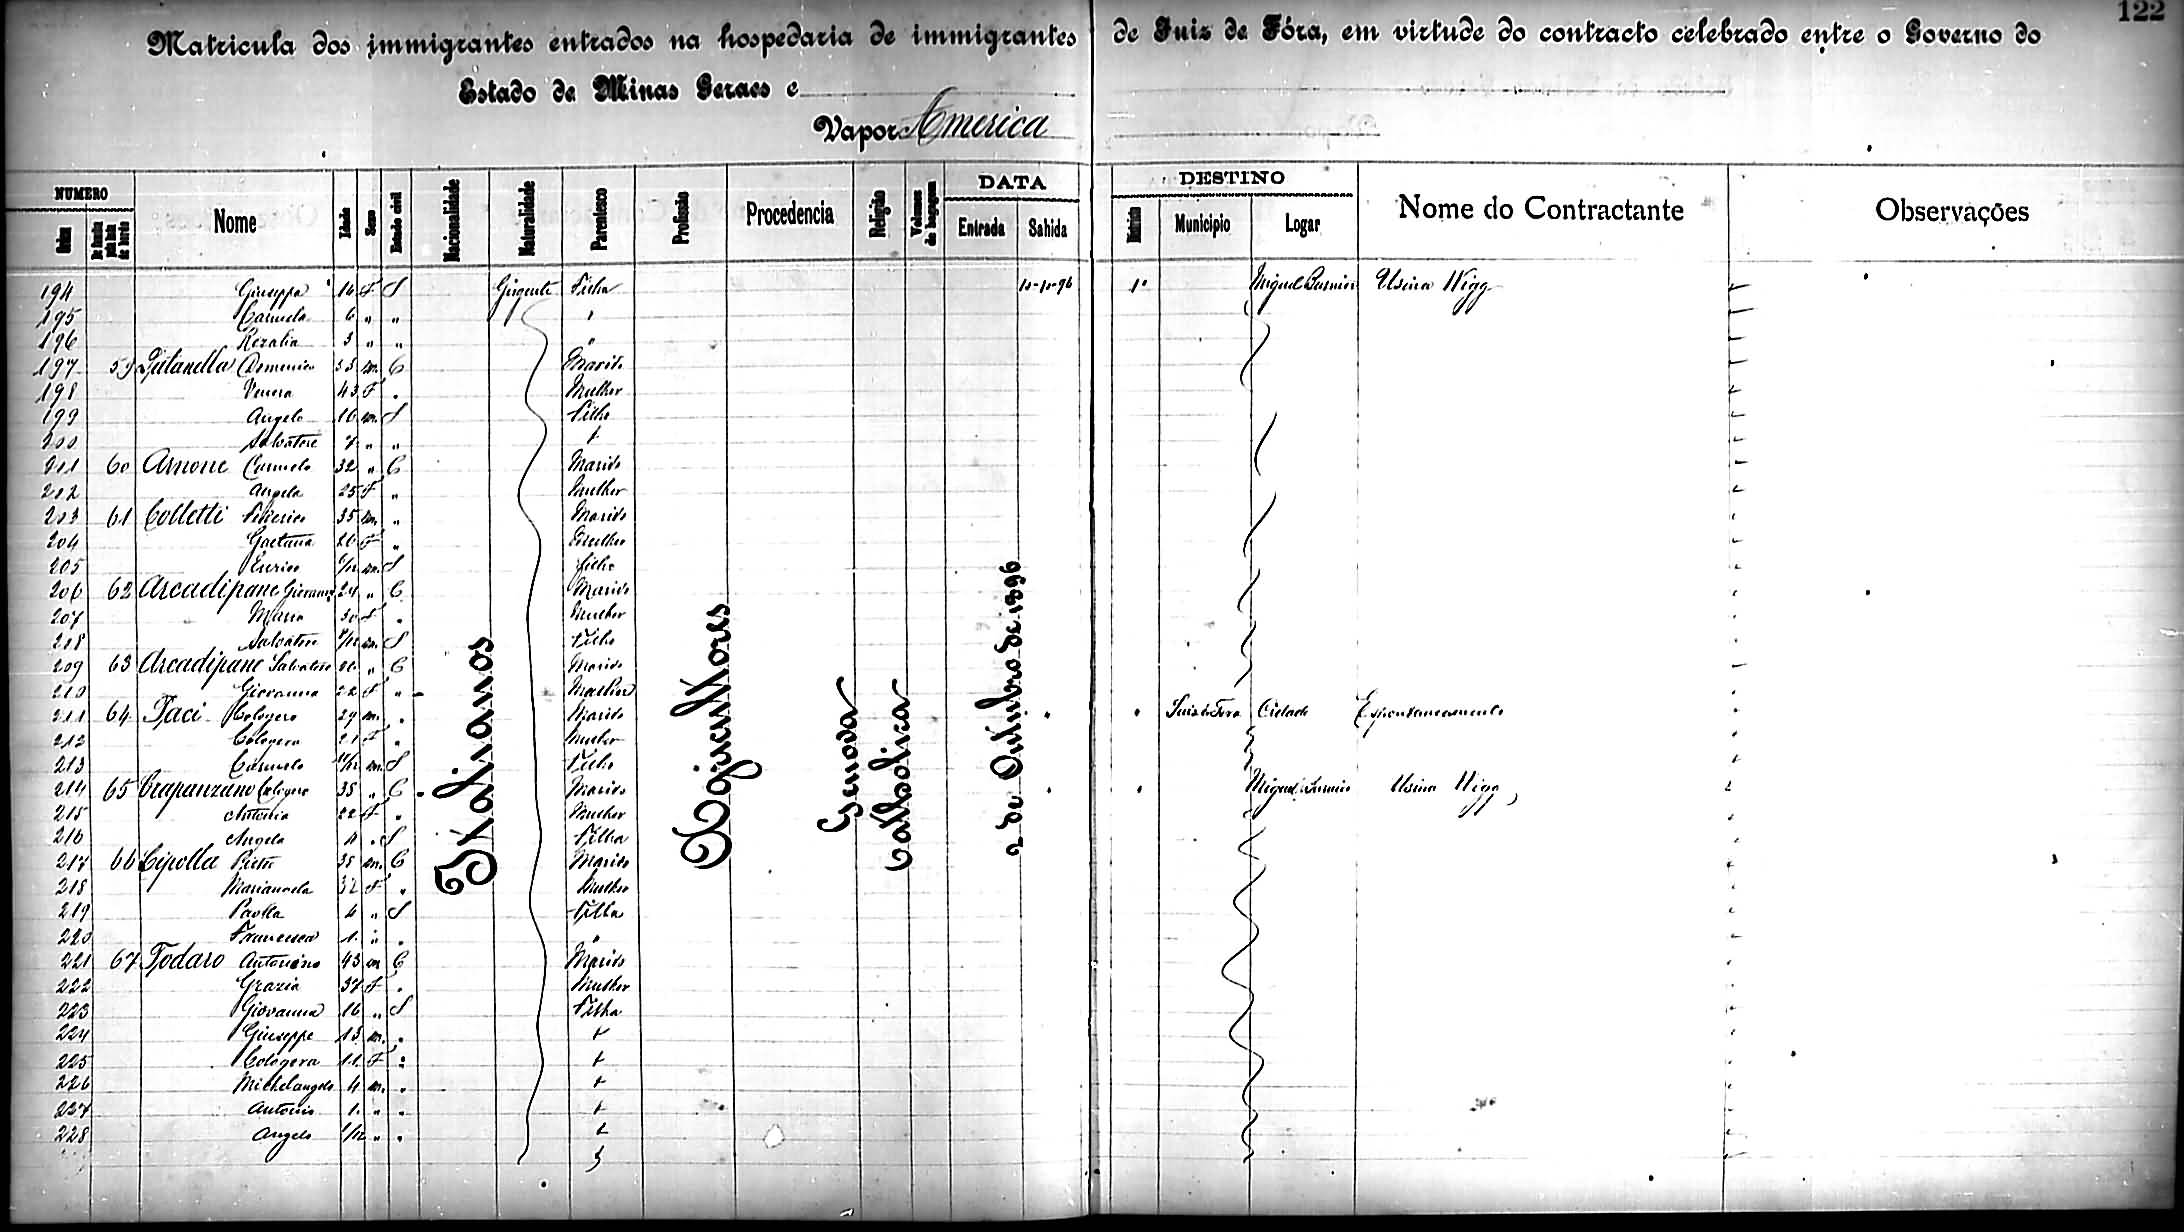 122
Matricula dos immigrantes entrados na hospedaria de immigrantes de Juiz de Fóra, em virtude do contracto celebrado entre o Governo do
Estado de Minas Geraes e
Vapor America
NUMERO Nome Idade Sexo Estado civil Nacionalidade Naturalidade Parentesco Profissão Procedencia Religião Volumes de bagagem DATA Entrada Sahida DESTINO Municipio Logar Nome do Contractante Observações
194 Giuseppa 14 F S Girgente Filha 10-10-96 1º Miguel Burnier Usina Wigg
195 Carmela 6 " " "
196 Rozalia 3 " " "
197 59 Domenico 38 m. C Marido
198 Venera 43 F . Mulher
199 Angelo 16 m. S Filho
200 Salvatore 7 " "
201 60 Arnone Carmelo 32 " C Marido
202 Angela 25 F " Mulher
203 61 Colletti Federico 35 m. " Marido
204 Gaetana 26 F " Mulher
205 Enrico m. S Filho
206 62 Arcadipane Giovanni 24 " C Marido
207 Maria 30 F . Mulher
208 Salvatore m. S Filho
209 63 Arcadipane Salvatore " C Marido
210 Giovanna 22 F " Mulher
211 64 Taci Cologero 29 m. . Marido Juiz de Fora Cidade Espontaneamente
212 Cologera 21 F . Mulher
213 Carmelo m. S Filho
214 65 Trapanzano Cologero 38 " C Marido Miguel Burnier Usina Wigg
215 Antonia 22 F . Mulher
216 Angela 11 . S Filha
217 66 Cipolla Pietro 38 m. C Marido
218 Mariannela 32 F . Mulher
219 Paolla 4 " S Filha
220 Francesca 1 " . "
221 67 Todaro Antonino 43 m C Marido
222 Grazia 37 F . Mulher
223 Giovanna 16 " S Filha
224 Giuseppe 13 m. .
225 Cologera 11 F .
226 Michelangelo 4 m. .
227 Antonio 1 " .
228 Angelo 1/12 " .
Italianos
Agricultores
Genova
Catholica
2 de Outubro de 1896